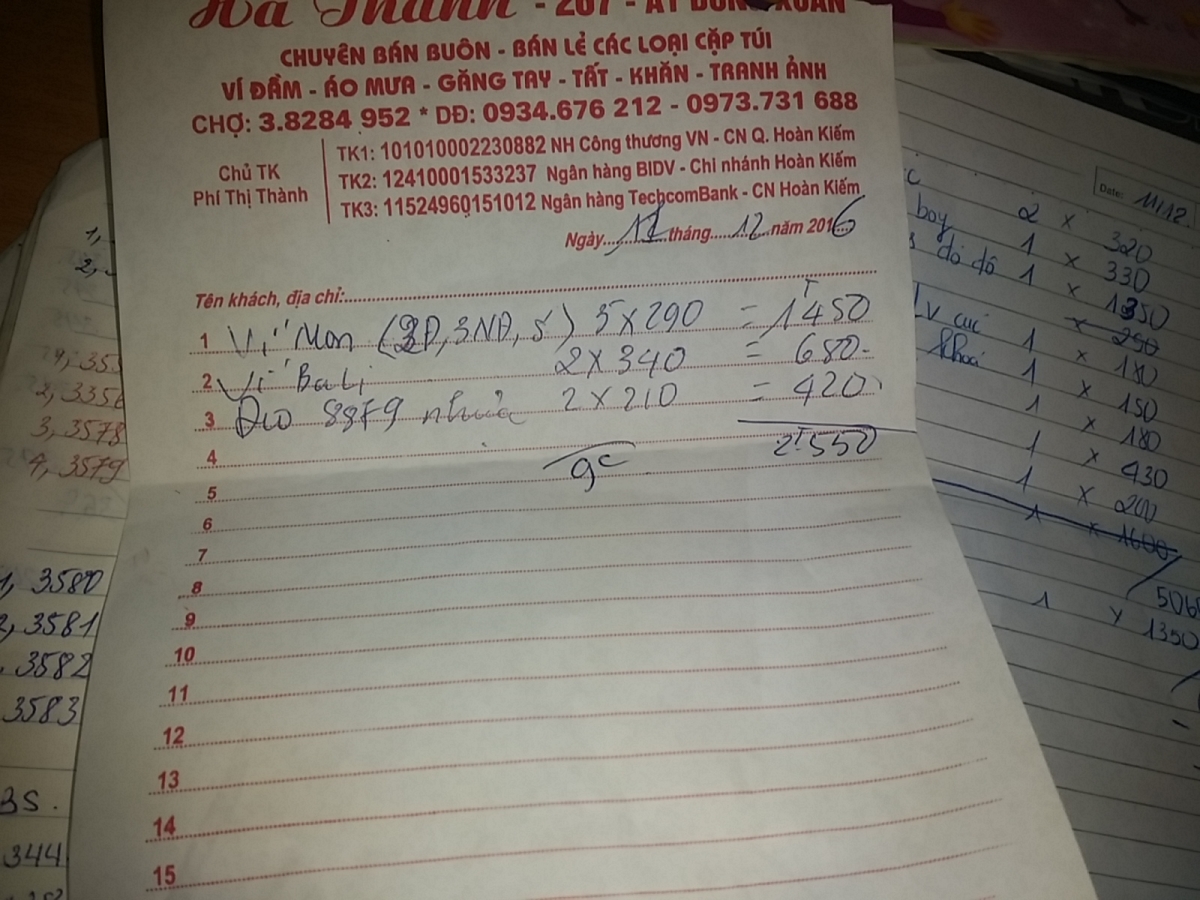 Hà Thành - 207 - A1 ĐỒNG XUÂN
CHUYÊN BÁN BUÔN - BÁN LẺ CÁC LOẠI CẶP TÚI
VÍ ĐẦM - ÁO MƯA - GĂNG TAY - TẤT - KHĂN - TRANH ẢNH
CHỢ: 3.8284 952 * DĐ: 0934.676 212 - 0973.731 688
Chủ TK
Phí Thị Thành
TK1: 101010002230882 NH Công thương VN - CN Q. Hoàn Kiếm
TK2: 12410001533237 Ngân hàng BIDV - Chi nhánh Hoàn Kiếm
TK3: 11524960151012 Ngân hàng TechcomBank - CN Hoàn Kiếm
Ngày 11 tháng 12 năm 2016
Tên khách, địa chỉ:
1 Ví Mon 5 x 290 = 1T450
2 Ví Bali 2 x 340 = 680
3 Đeo 8879 nhựa 2 x 210 = 420
4 2T550
9c
5
6
7
8
9
10
11
12
13
14
15
1,
2,
3, 3578
4, 3579
1, 3580
2, 3581
3582
3583
35.
344
Date: 11/12
2 x 320
boy 1 x 330
đỏ đô 1 x 1350
x 250
LV cúc 1 x 180
khoá 1 x 150
1 x 180
1 x 430
1 x 200
1 x 1600
506
1 x 1350